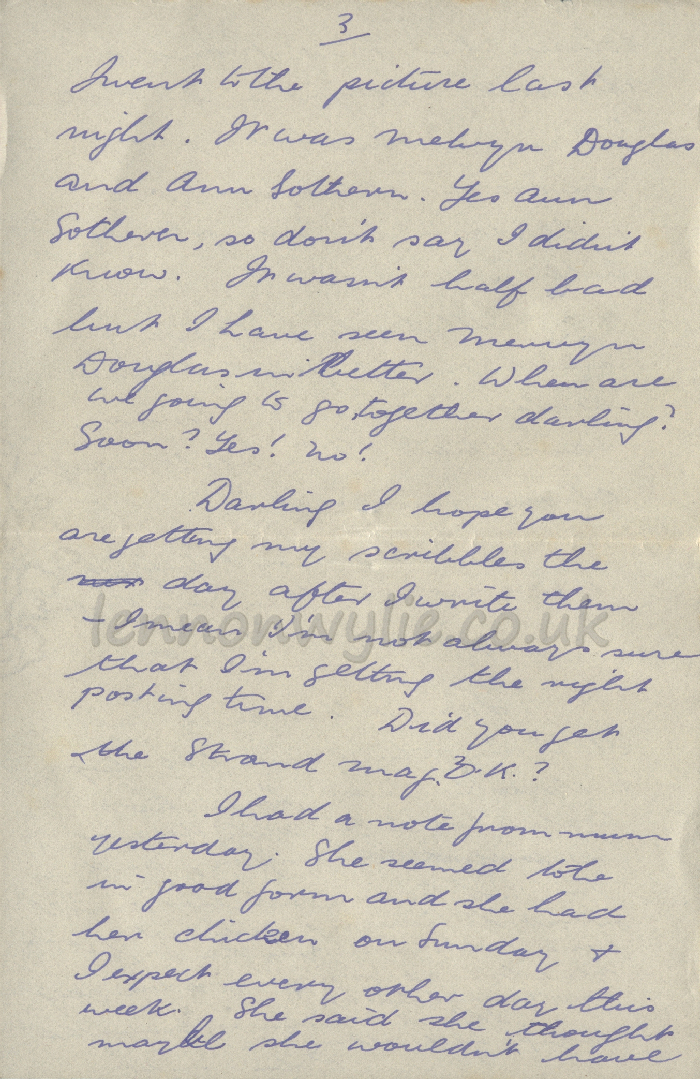 3
I went to the picture last
night. It was Melvyn Douglas
and Ann Sothern. Yes Ann
Sothern, so don't say I didn't
know. It wasn't half bad
but I have seen Melvyn
Douglas in better. When are
we going to go, together darling?
Soon? Yes! No!
Darling I hope you
are getting my scribbles the
day after I write them
- I mean I'm not always sure
that I'm getting the right
posting time. Did you get
the Strand mag. O.K.?
I had a note from mum
yesterday. She seemed to be
in good form and she had
her chicken on Sunday +
I expect every other day this
week. She said she thought
maybe she wouldn't have
lennonwylie.co.uk